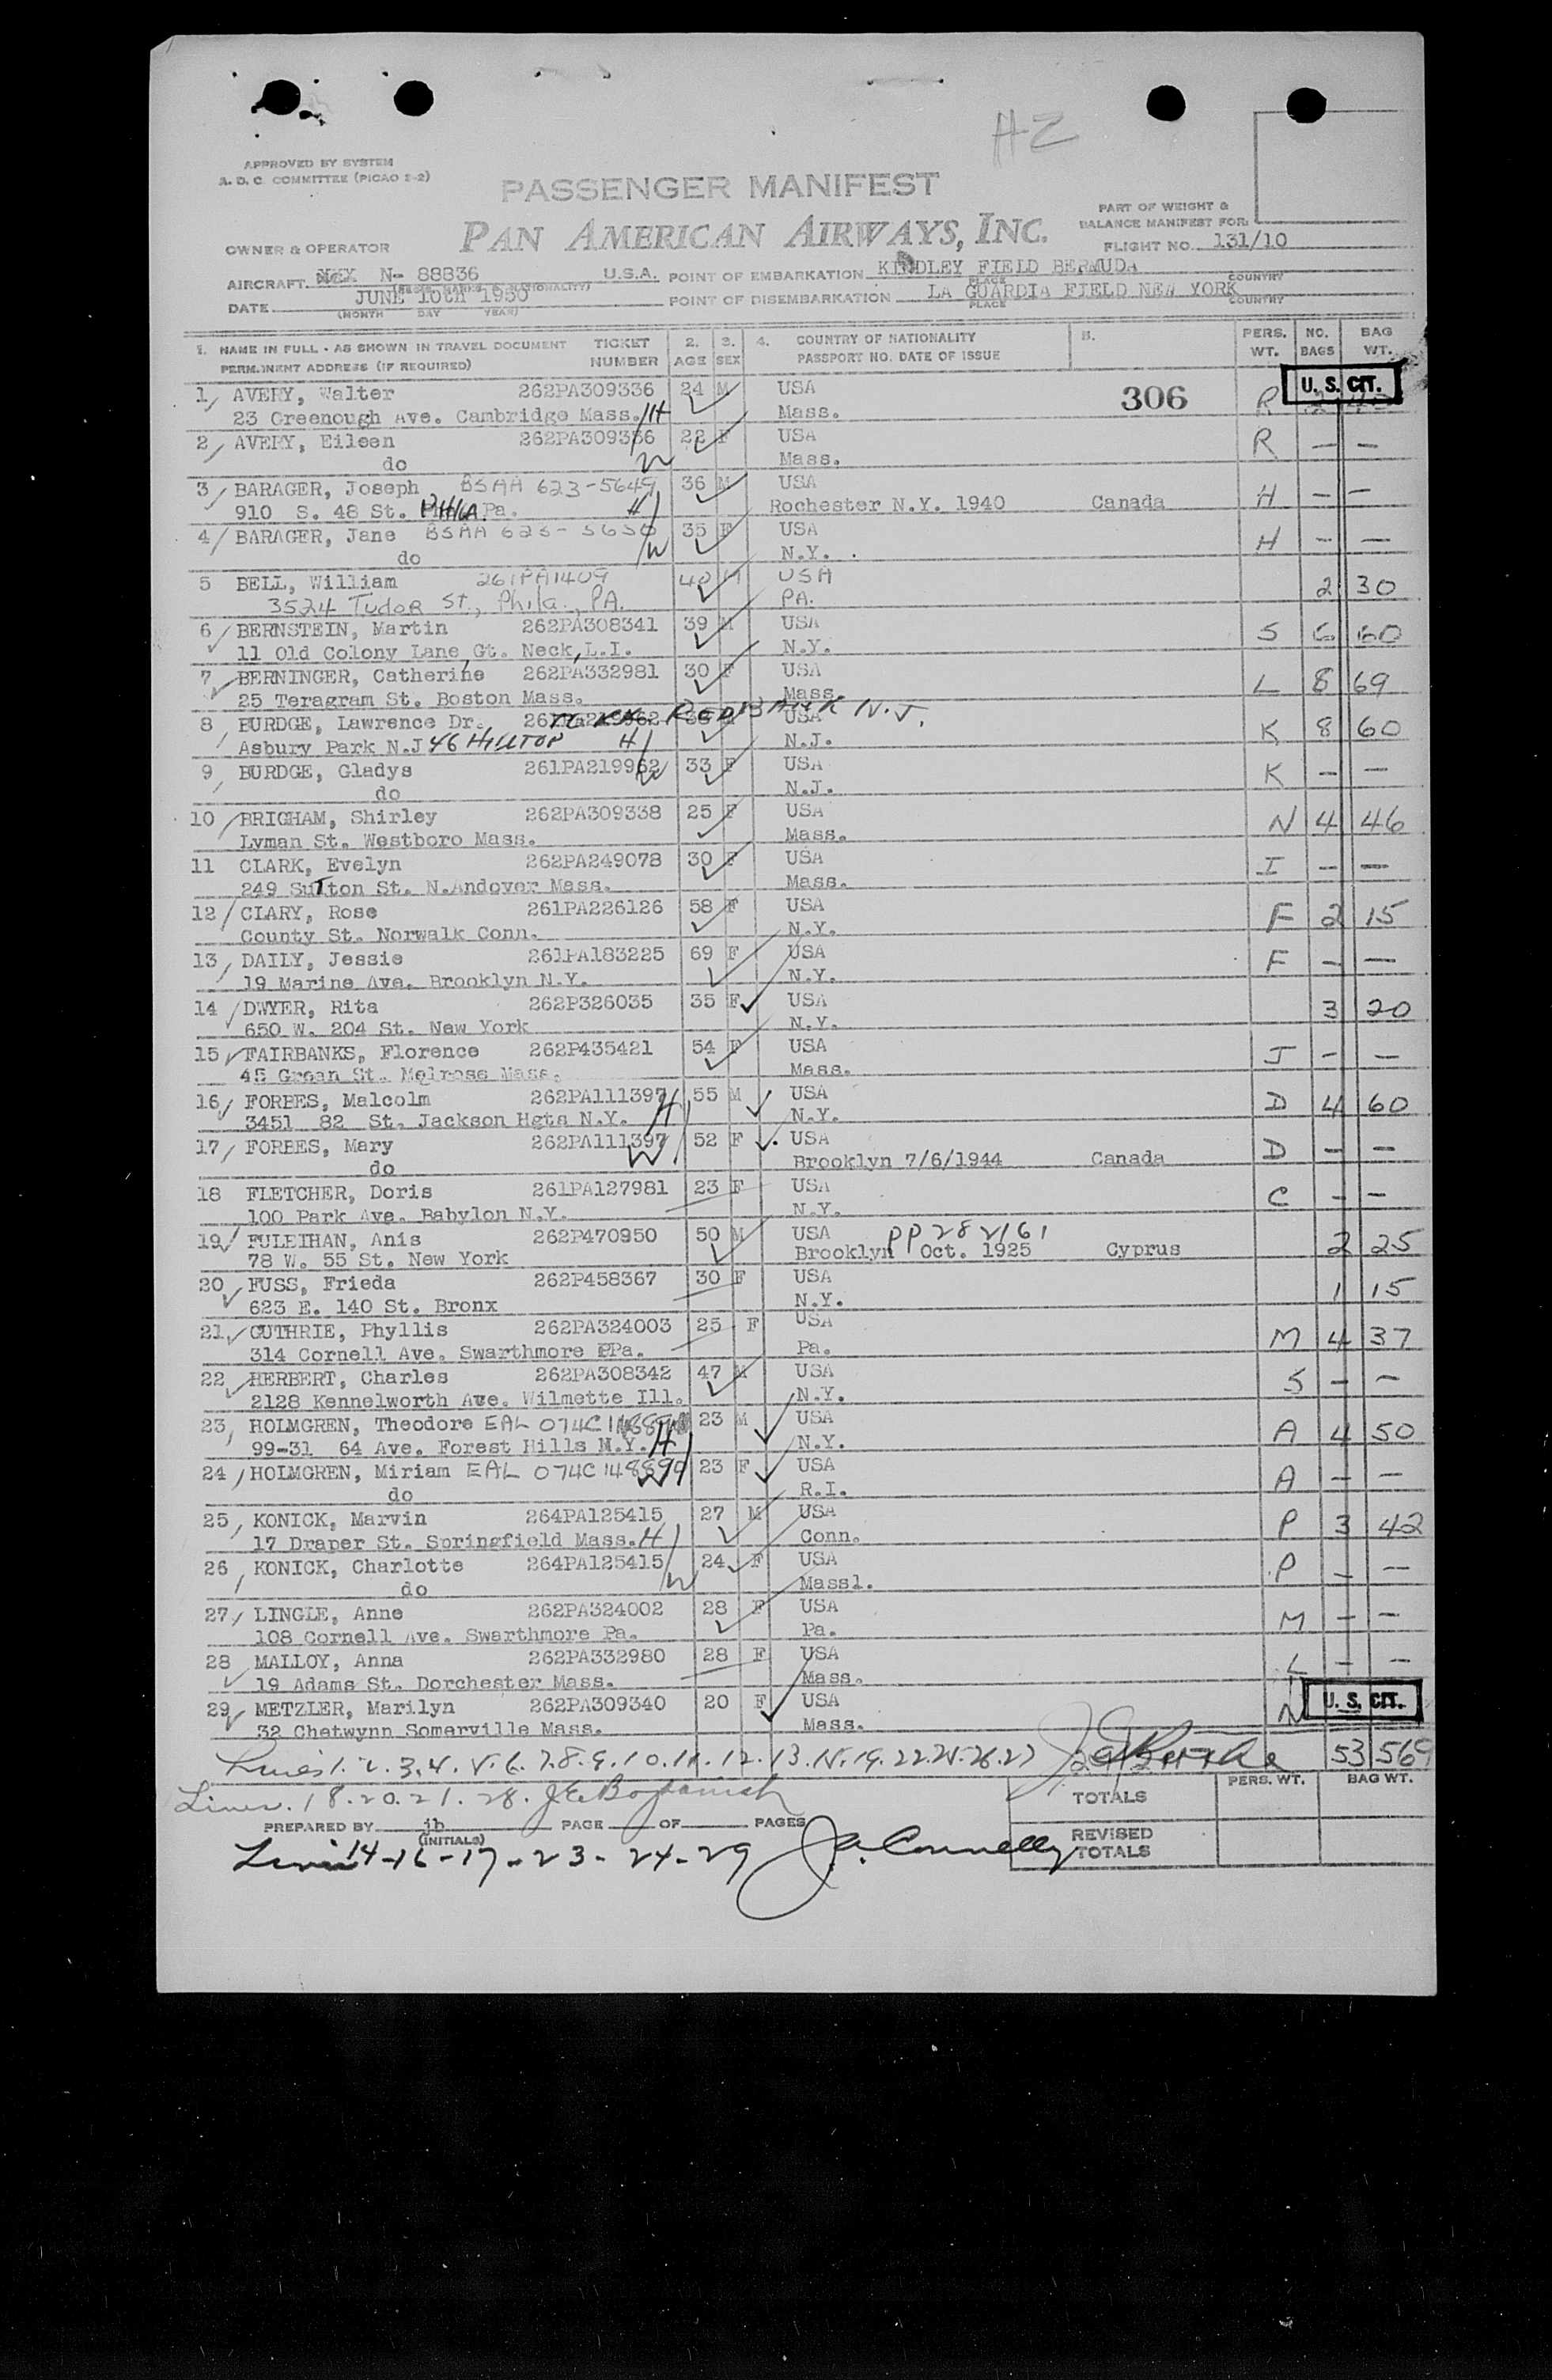 HZ
APPROVED BY SYSTEM
A. D. C. COMMITTEE (PICAO 2-2)
PASSENGER MANIFEST
PART OF WEIGHT &
BALANCE MANIFEST FOR:
OWNER & OPERATOR PAN AMERICAN AIRWAYS, INC.
FLIGHT NO. 131/10
AIRCRAFT N- 88836 U.S.A. POINT OF EMBARKATION KINDLEY FIELD BERMUDA
PLACE COUNTRY
DATE JUNE 10th 1950 POINT OF DISEMBARKATION LA GUARDIA FIELD NEW YORK
(MONTH DAY YEAR) PLACE COUNTRY
1. NAME IN FULL - AS SHOWN IN TRAVEL DOCUMENT TICKET 2. 3. 4. COUNTRY OF NATIONALITY 5. PERS. NO. BAG
PERMANENT ADDRESS (IF REQUIRED) NUMBER AGE SEX PASSPORT NO. DATE OF ISSUE WT. BAGS WT.
U. S. CIT.
1 AVERY, Walter 262PA309336 24 M USA 306 R
23 Greenough Ave. Cambridge Mass. H Mass.
2 AVERY, Eileen 262PA309336 22 F USA R — —
do W Mass.
3 BARAGER, Joseph BSAA 623-5649 36 M USA H — —
910 S. 48 St. PHILA. Pa. H Rochester N.Y. 1940 Canada
4 BARAGER, Jane BSAA 623-5650 35 F USA H — —
do W N.Y.
5 BELL, William 261PA1409 40 M USA 2 30
3524 Tudor St., Phila., PA. PA.
6 BERNSTEIN, Martin 262PA308341 39 M USA S 6 60
11 Old Colony Lane, Gt. Neck, L.I. N.Y.
7 BERNINGER, Catherine 262PA332981 30 F USA L 8 69
25 Teragram St. Boston Mass. Mass.
8 BURDGE, Lawrence Dr. RED BANK N.J. USA K 8 60
Asbury Park N.J 46 HILLTOP H N.J.
9 BURDGE, Gladys 261PA219962 W 33 F USA K — —
do N.J.
10 BRIGHAM, Shirley 262PA309338 25 F USA N 4 46
Lyman St. Westboro Mass. Mass.
11 CLARK, Evelyn 262PA249078 30 F USA I — —
249 Sutton St. N.Andover Mass. Mass.
12 CLARY, Rose 261PA226126 58 F USA F 2 15
County St. Norwalk Conn. N.Y.
13 DAILY, Jessie 261PA183225 69 F USA F — —
19 Marine Ave. Brooklyn N.Y. N.Y.
14 DWYER, Rita 262P326035 35 F USA 3 20
650 W. 204 St. New York N.Y.
15 FAIRBANKS, Florence 262P435421 54 F USA J — —
45 Green St. Melrose Mass. Mass.
16 FORBES, Malcolm 262PA111397 55 M USA D 4 60
3451 82 St. Jackson Hgts N.Y. H N.Y.
17 FORBES, Mary 262PA111397 52 F USA D — —
do W Brooklyn 7/6/1944 Canada
18 FLETCHER, Doris 261PA127981 23 F USA C — —
100 Park Ave. Babylon N.Y. N.Y.
19 FULEIHAN, Anis 262P470950 50 M USA PP 282161 2 25
78 W. 55 St. New York Brooklyn Oct. 1925 Cyprus
20 FUSS, Frieda 262P458367 30 F USA 1 15
623 E. 140 St. Bronx N.Y.
21 GUTHRIE, Phyllis 262PA324003 25 F USA M 4 37
314 Cornell Ave. Swarthmore PPa. Pa.
22 HERBERT, Charles 262PA308342 47 M USA S — —
2128 Kennelworth Ave. Wilmette Ill. N.Y.
23 HOLMGREN, Theodore EAL 23 M USA A 4 50
99-31 64 Ave. Forest Hills N.Y. H N.Y.
24 HOLMGREN, Miriam EAL 074C148890 23 F USA A — —
do W R.I.
25 KONICK, Marvin 264PA125415 27 M USA P 3 42
17 Draper St. Springfield Mass. H Conn.
26 KONICK, Charlotte 264PA125415 24 F USA P — —
do W Massl.
27 LINGLE, Anne 262PA324002 28 F USA M — —
108 Cornell Ave. Swarthmore Pa. Pa.
28 MALLOY, Anna 262PA332980 28 F USA L — —
19 Adams St. Dorchester Mass. Mass.
29 METZLER, Marilyn 262PA309340 20 F USA N U. S. CIT.
32 Chetwynn Somerville Mass. Mass.
Lines 1. 2. 3. 4. 5. 6. 7. 8. 9. 10. 11. 12. 13. 15. 19. 22. 25. 26. 27 53 569
Lines. 18. 20. 21. 28.
TOTALS PERS. WT. BAG WT.
PREPARED BY jb PAGE OF PAGES
(INITIALS)
REVISED
TOTALS
Lines 14-16-17-23-24-29 J. A. Connelly